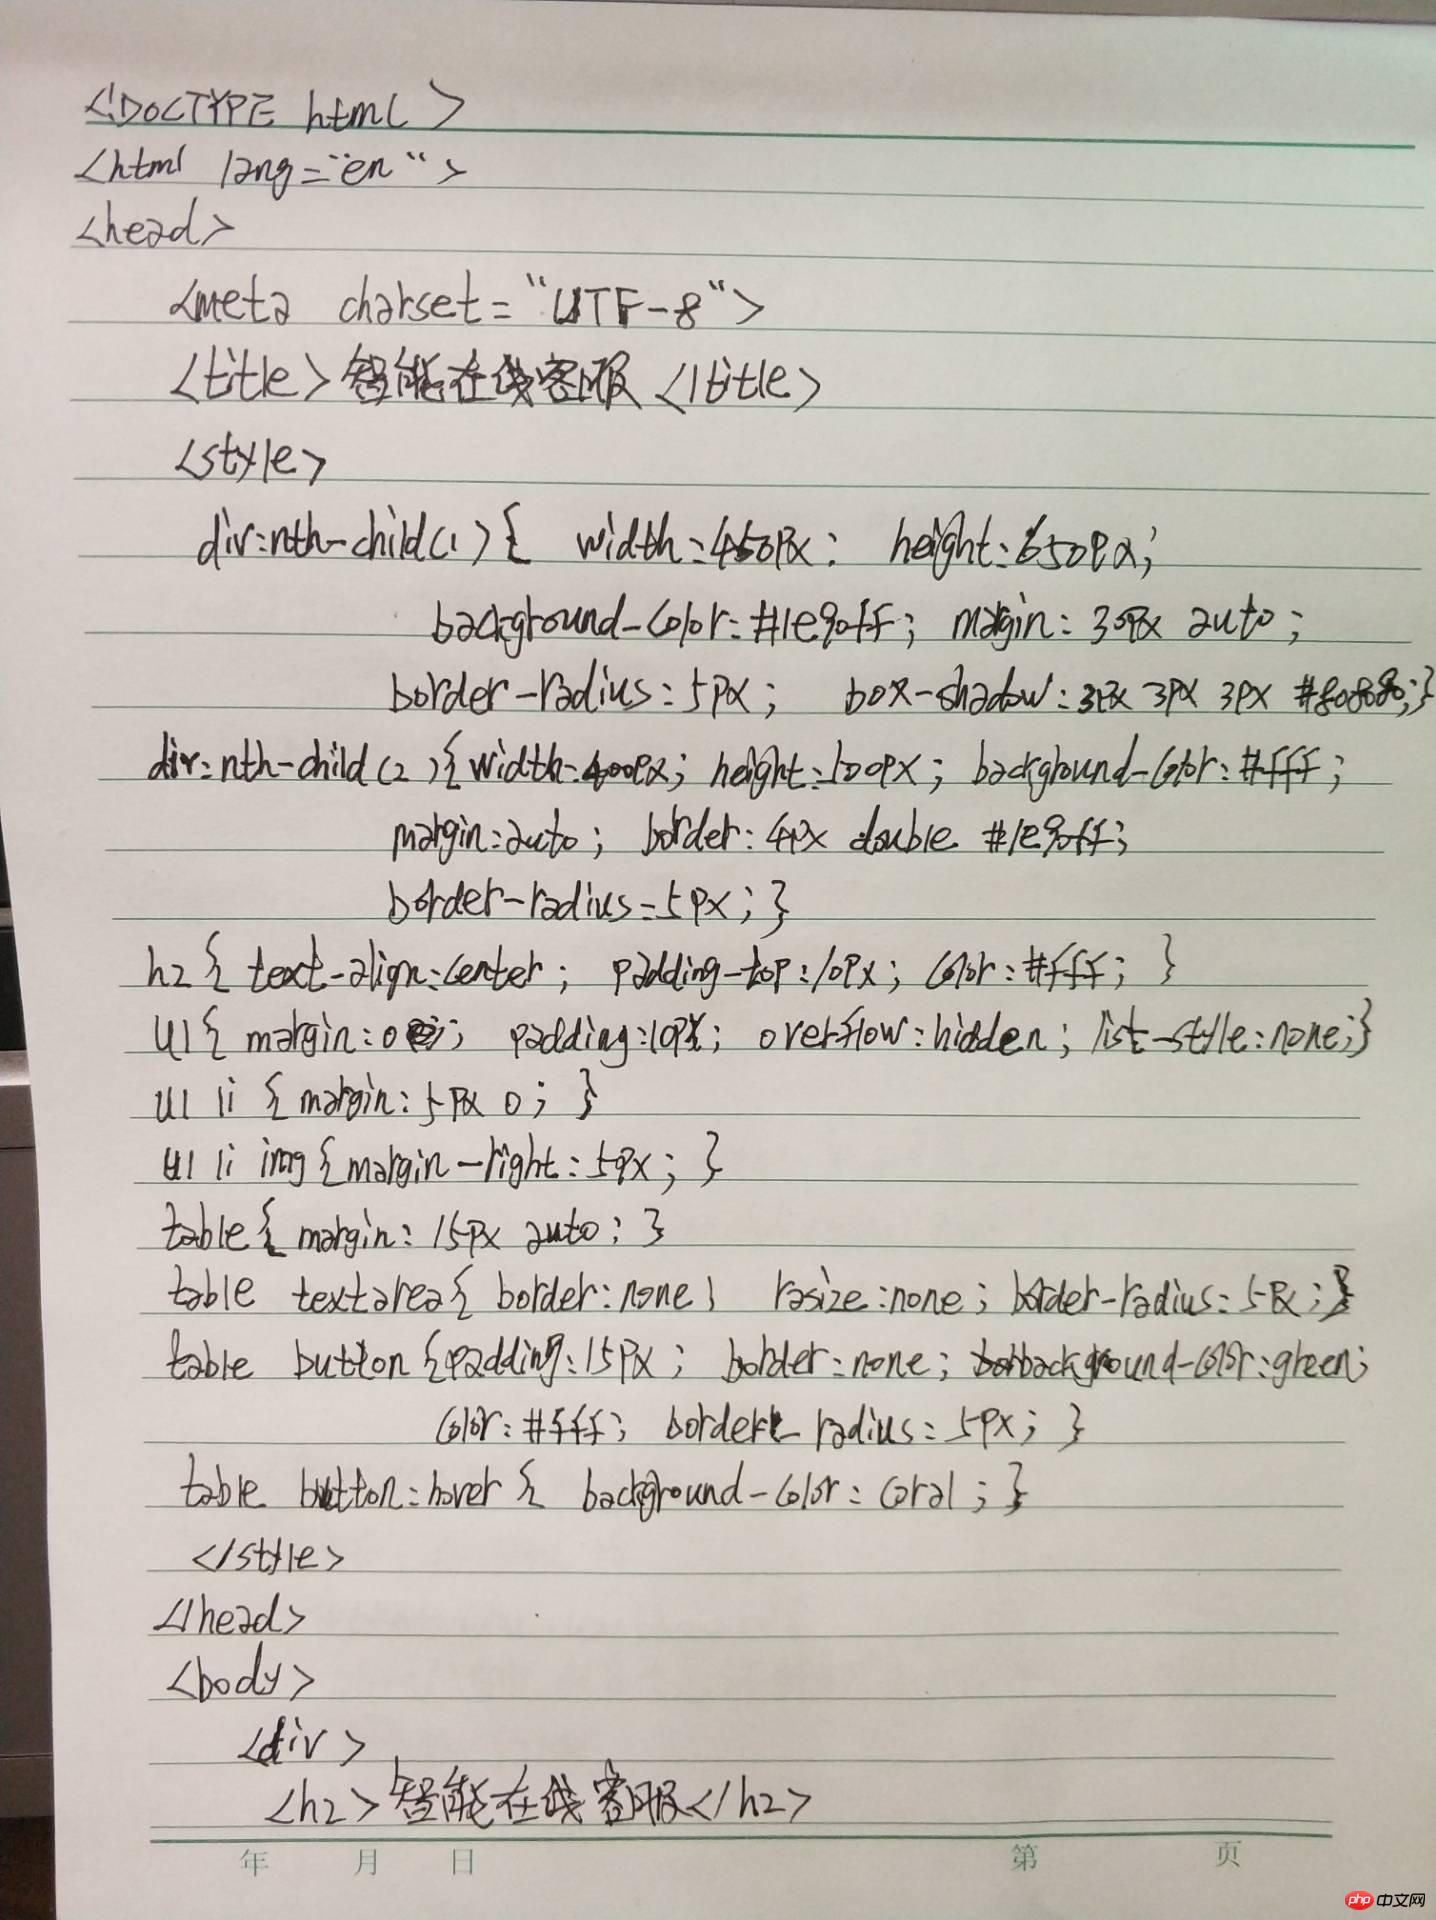 <!DOCTYPE html>
<html lang="en">
<head>
<meta charset="UTF-8">
<title>智能在线客服</title>
<style>
div:nth-child(1){ width:450px: height:650px;
background-color:#1e90ff; margin: 30px auto;
border-radius:5px; box-shadow:3px 3px 3px #808080;}
div:nth-child(2){width:400px; height:500px; background-color:#fff;
margin:auto; border: 4px double #1e90ff;
border-radius:5px;}
h2{ text-align:center; padding-top:10px; color:#fff; }
ul{ margin:0; padding:10px; overflow:hidden; list-style:none;}
ul li { margin:5px 0; }
ul li img{margin-right:5px; }
table{ margin: 15px auto; }
table textarea{ border:none; rasize:none; border-radius:5px;}
table button{padding:15px; border:none; background-color:green;
color:#fff; border-radius:5px; }
table button:hover{ background-color: coral; }
</style>
</head>
<body>
<div>
<h2>智能在线客服</h2>
年 月 日 第 页
php 中文网